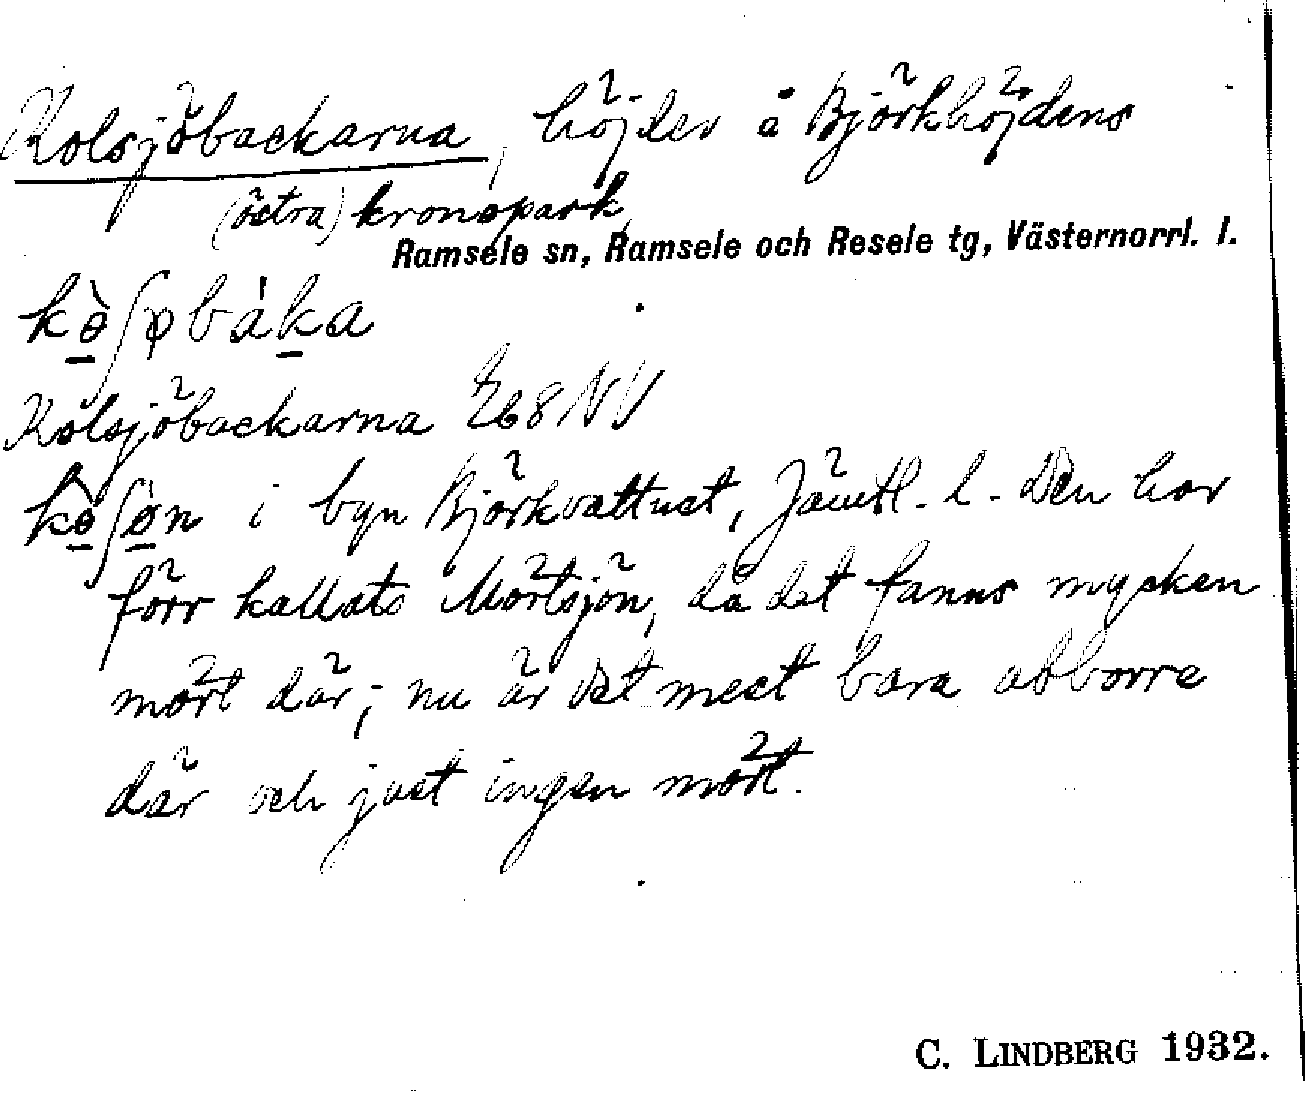 Kolsjöbackarna, höjder å Björkhöjdens
(östra) kronopark,
Ramsele sn, Ramsele och Resele tg, Västernorrl. l.
Kolsjöbackarna E68NV
i byn Björkvattnet, Jämtl. l. Den har
förr kallats Mörtsjön, då det fanns mycken
mört där; nu är det mest bara abborre
där och just ingen mört.
C. LINDBERG 1932.